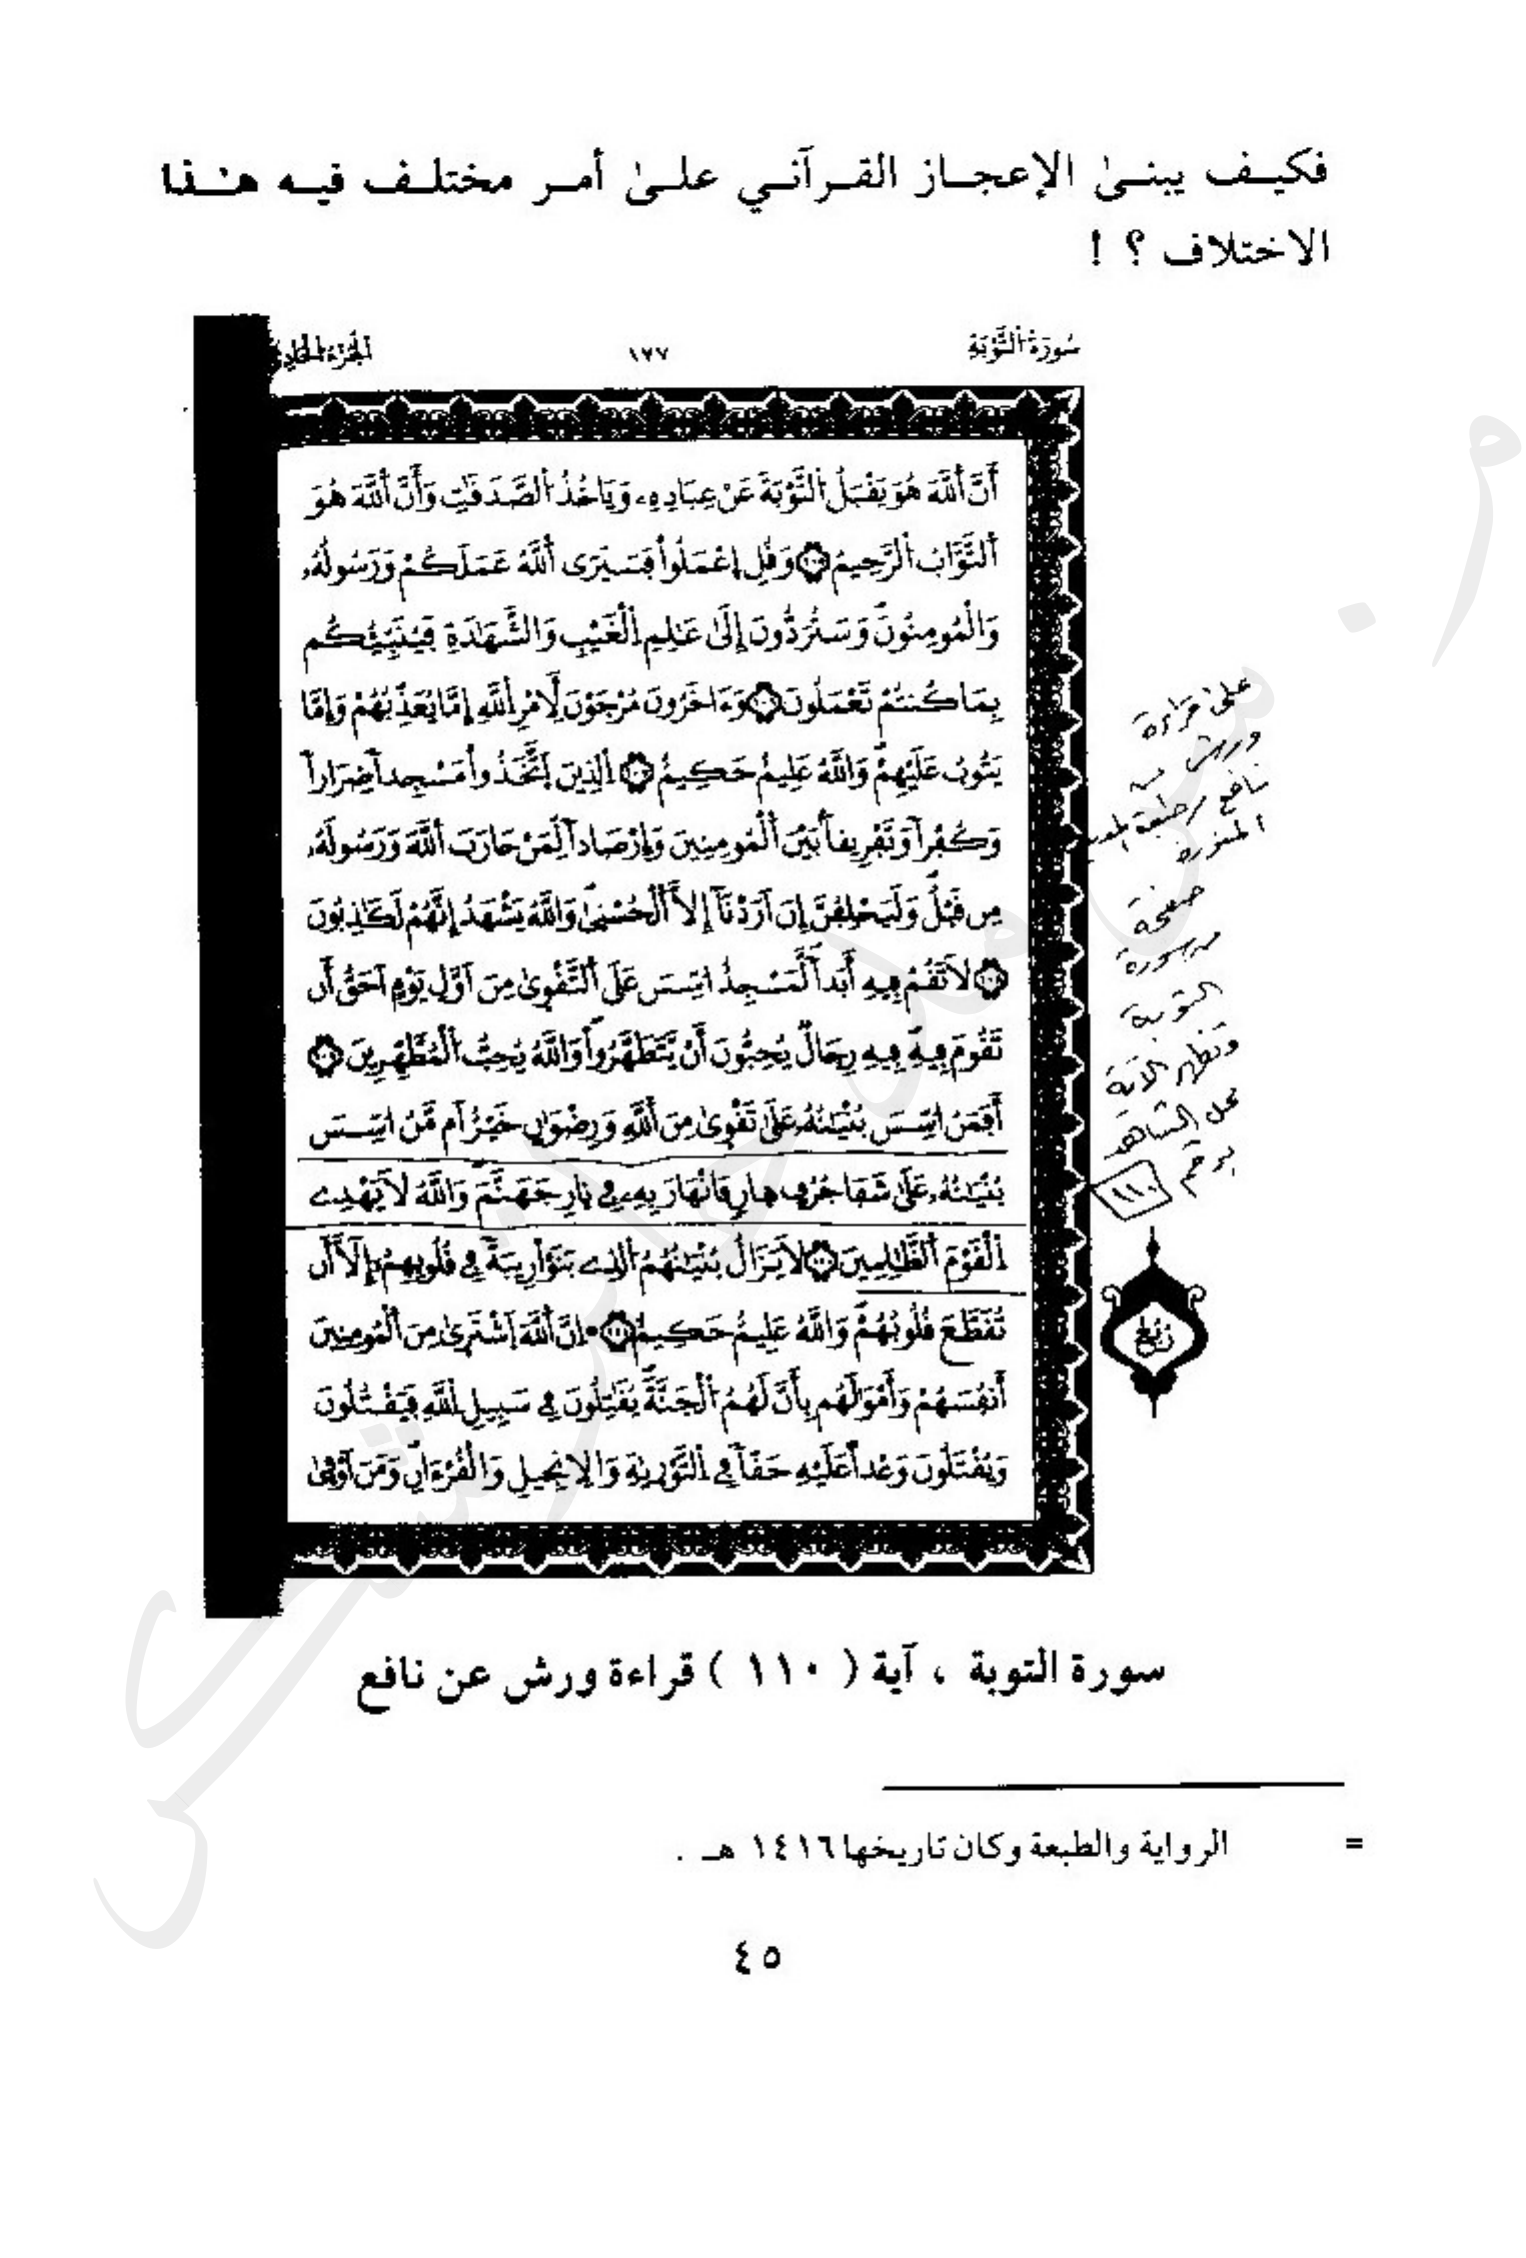 فكيف يبنىٰ الإعجاز القرآني علىٰ أمر مختلف فيه هٰذا
الاختلاف ؟ !
سُورَةُ التَّوْبَةِ ١٧٧ الجُزْءُ الحَادِي
أَنَّ اَللَّهَ هُوَ يَقْبَلُ اُلتَّوْبَةَ عَنْ عِبَادِهِۦ وَيَاخُذُ اُلصَّدَقَٰتِ وَأَنَّ اَللَّهَ هُوَ
اَلتَّوَّابُ اُلرَّحِيمُ وَقُلِ اِعْمَلُواْ فَسَيَرَى اَللَّهُ عَمَلَكُمْ وَرَسُولُهُۥ
وَالْمُومِنُونَ وَسَتُرَدُّونَ إِلَىٰ عَٰلِمِ اِلْغَيْبِ وَالشَّهَٰدَةِ فَيُنَبِّئُكُم
بِمَا كُنتُمْ تَعْمَلُونَ وَءَاخَرُونَ مُرْجَوْنَ لِأَمْرِ اِللَّهِ إِمَّا يُعَذِّبُهُمْ وَإِمَّا
يَتُوبُ عَلَيْهِمْ وَاللَّهُ عَلِيمٌ حَكِيمٌ اِلذِينَ اَتَّخَذُواْ مَسْجِداً ضِرَاراً
وَكُفْراً وَتَفْرِيقاً بَيْنَ اَلْمُومِنِينَ وَإِرْصَاداً لِّمَنْ حَارَبَ اَللَّهَ وَرَسُولَهُۥ
مِن قَبْلُ وَلَيَحْلِفُنَّ إِنَ اَرَدْنَآ إِلاَّ اَلْحُسْنَىٰ وَاللَّهُ يَشْهَدُ إِنَّهُمْ لَكَٰذِبُونَ
لَا تَقُمْ فِيهِ أَبَداً لَّمَسْجِدٌ اُسِّسَ عَلَى اَلتَّقْوَىٰ مِنَ اَوَّلِ يَوْمٍ اَحَقُّ أَن
تَقُومَ فِيهِ فِيهِ رِجَالٌ يُحِبُّونَ أَنْ يَّتَطَهَّرُواْ وَاللَّهُ يُحِبُّ اُلْمُطَّهِّرِينَ
أَفَمَنُ اسِّسَ بُنْيَٰنُهُۥ عَلَىٰ تَقْوَىٰ مِنَ اَللَّهِ وَرِضْوَٰنٍ خَيْرٌ اَم مَّنُ اسِّسَ
بُنْيَٰنُهُۥ عَلَىٰ شَفَا جُرُفٍ هِارٍ فَانْهَارَ بِهِۦ فِي نِارِ جَهَنَّمَ وَاللَّهُ لَا يَهْدِے
اِلْقَوْمَ اَلظَّٰلِمِينَ لَا يَزَالُ بُنْيَٰنُهُمُ اُلذِے بَنَوْاْ رِيبَةً فِي قُلُوبِهِمُۥٓ إِلَّآ أَن
تُقَطَّعَ قُلُوبُهُمْ وَاللَّهُ عَلِيمٌ حَكِيمٌ إِنَّ اَللَّهَ اَشْتَرَىٰ مِنَ اَلْمُومِنِينَ
أَنفُسَهُمْ وَأَمْوَٰلَهُم بِأَنَّ لَهُمُ اُلْجَنَّةَ يُقَٰتِلُونَ فِي سَبِيلِ اِللَّهِ فَيَقْتُلُونَ
وَيُقْتَلُونَ وَعْداً عَلَيْهِ حَقّاً فِي اِلتَّوْرِيٰةِ وَالِانجِيلِ وَالْقُرْءَانِ وَمَنَ اَوْفَىٰ
على قراءة
ورش عن
نافع طبعة المدينة
المنورة
صفحة
من سورة
التوبة
وتظهر الآية
محل الشاهد
برقم
١١٠
رُبُع
سورة التوبة ، آية ( ١١٠ ) قراءة ورش عن نافع
= الرواية والطبعة وكان تاريخها ١٤١٦ هـ .
٤٥